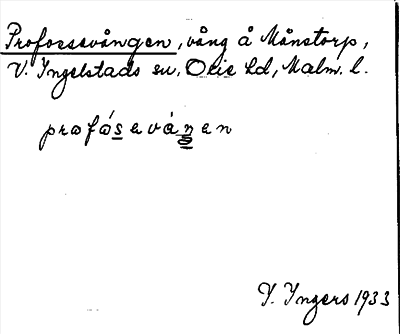 Profossevången, vång å Månstorp,
V. Ingelstads sn. Oxie hd, Malm. l.
profósevåŋen
I. Ingers 1933